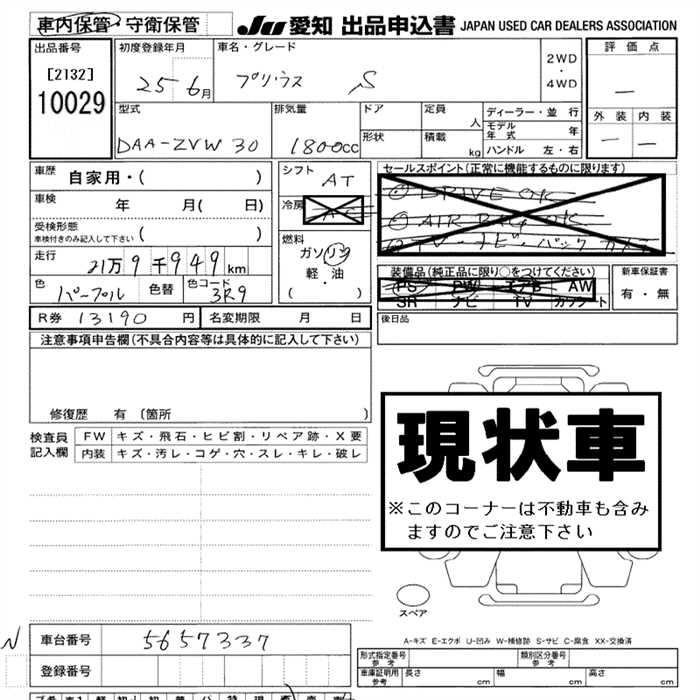 車内保管・守衛保管
JU 愛知 出品申込書 JAPAN USED CAR DEALERS ASSOCIATION
出品番号
[2132]
10029
初度登録年月
25 6月
車名・グレード
プリウス S
2WD
・
4WD
評価点
—
外装 内装
— —
型式
DAA-ZVW30
排気量
1800cc
ドア
形状
定員
人
積載
kg
ディーラー・並行
モデル年式 年
ハンドル 左・右
車歴 自家用・( )
車検 年 月( 日)
受検形態
車検付きのみ記入して下さい ( )
走行 21万9千949km
色 パープル 色替 色コード 3R9
シフト AT
冷房 AC
燃料
ガソリン
軽・油
( )
セールスポイント(正常に機能するものに限ります)
① DRIVE OK
② AIR BAG OK
装備品(純正品に限り○をつけてください)
PS PW エアB AW
SR ナビ TV カワシート
新車保証書
有・無
R券 13190 円 名変期限 月 日
後日品
注意事項申告欄(不具合内容等は具体的に記入して下さい)
修復歴 有 (箇所 )
検査員記入欄
FW キズ・飛石・ヒビ割・リペア跡・X要
内装 キズ・汚レ・コゲ・穴・スレ・キレ・破レ
現状車
※このコーナーは不動車も含み
ますのでご注意下さい
スペア
A-キズ E-エクボ U-凹み W-補修跡 S-サビ C-腐食 XX-交換済
N 車台番号 5657337
登録番号
形式指定番号 参考 類別区分番号 参考
車庫証明用 参考 長さ cm 幅 cm 高さ cm